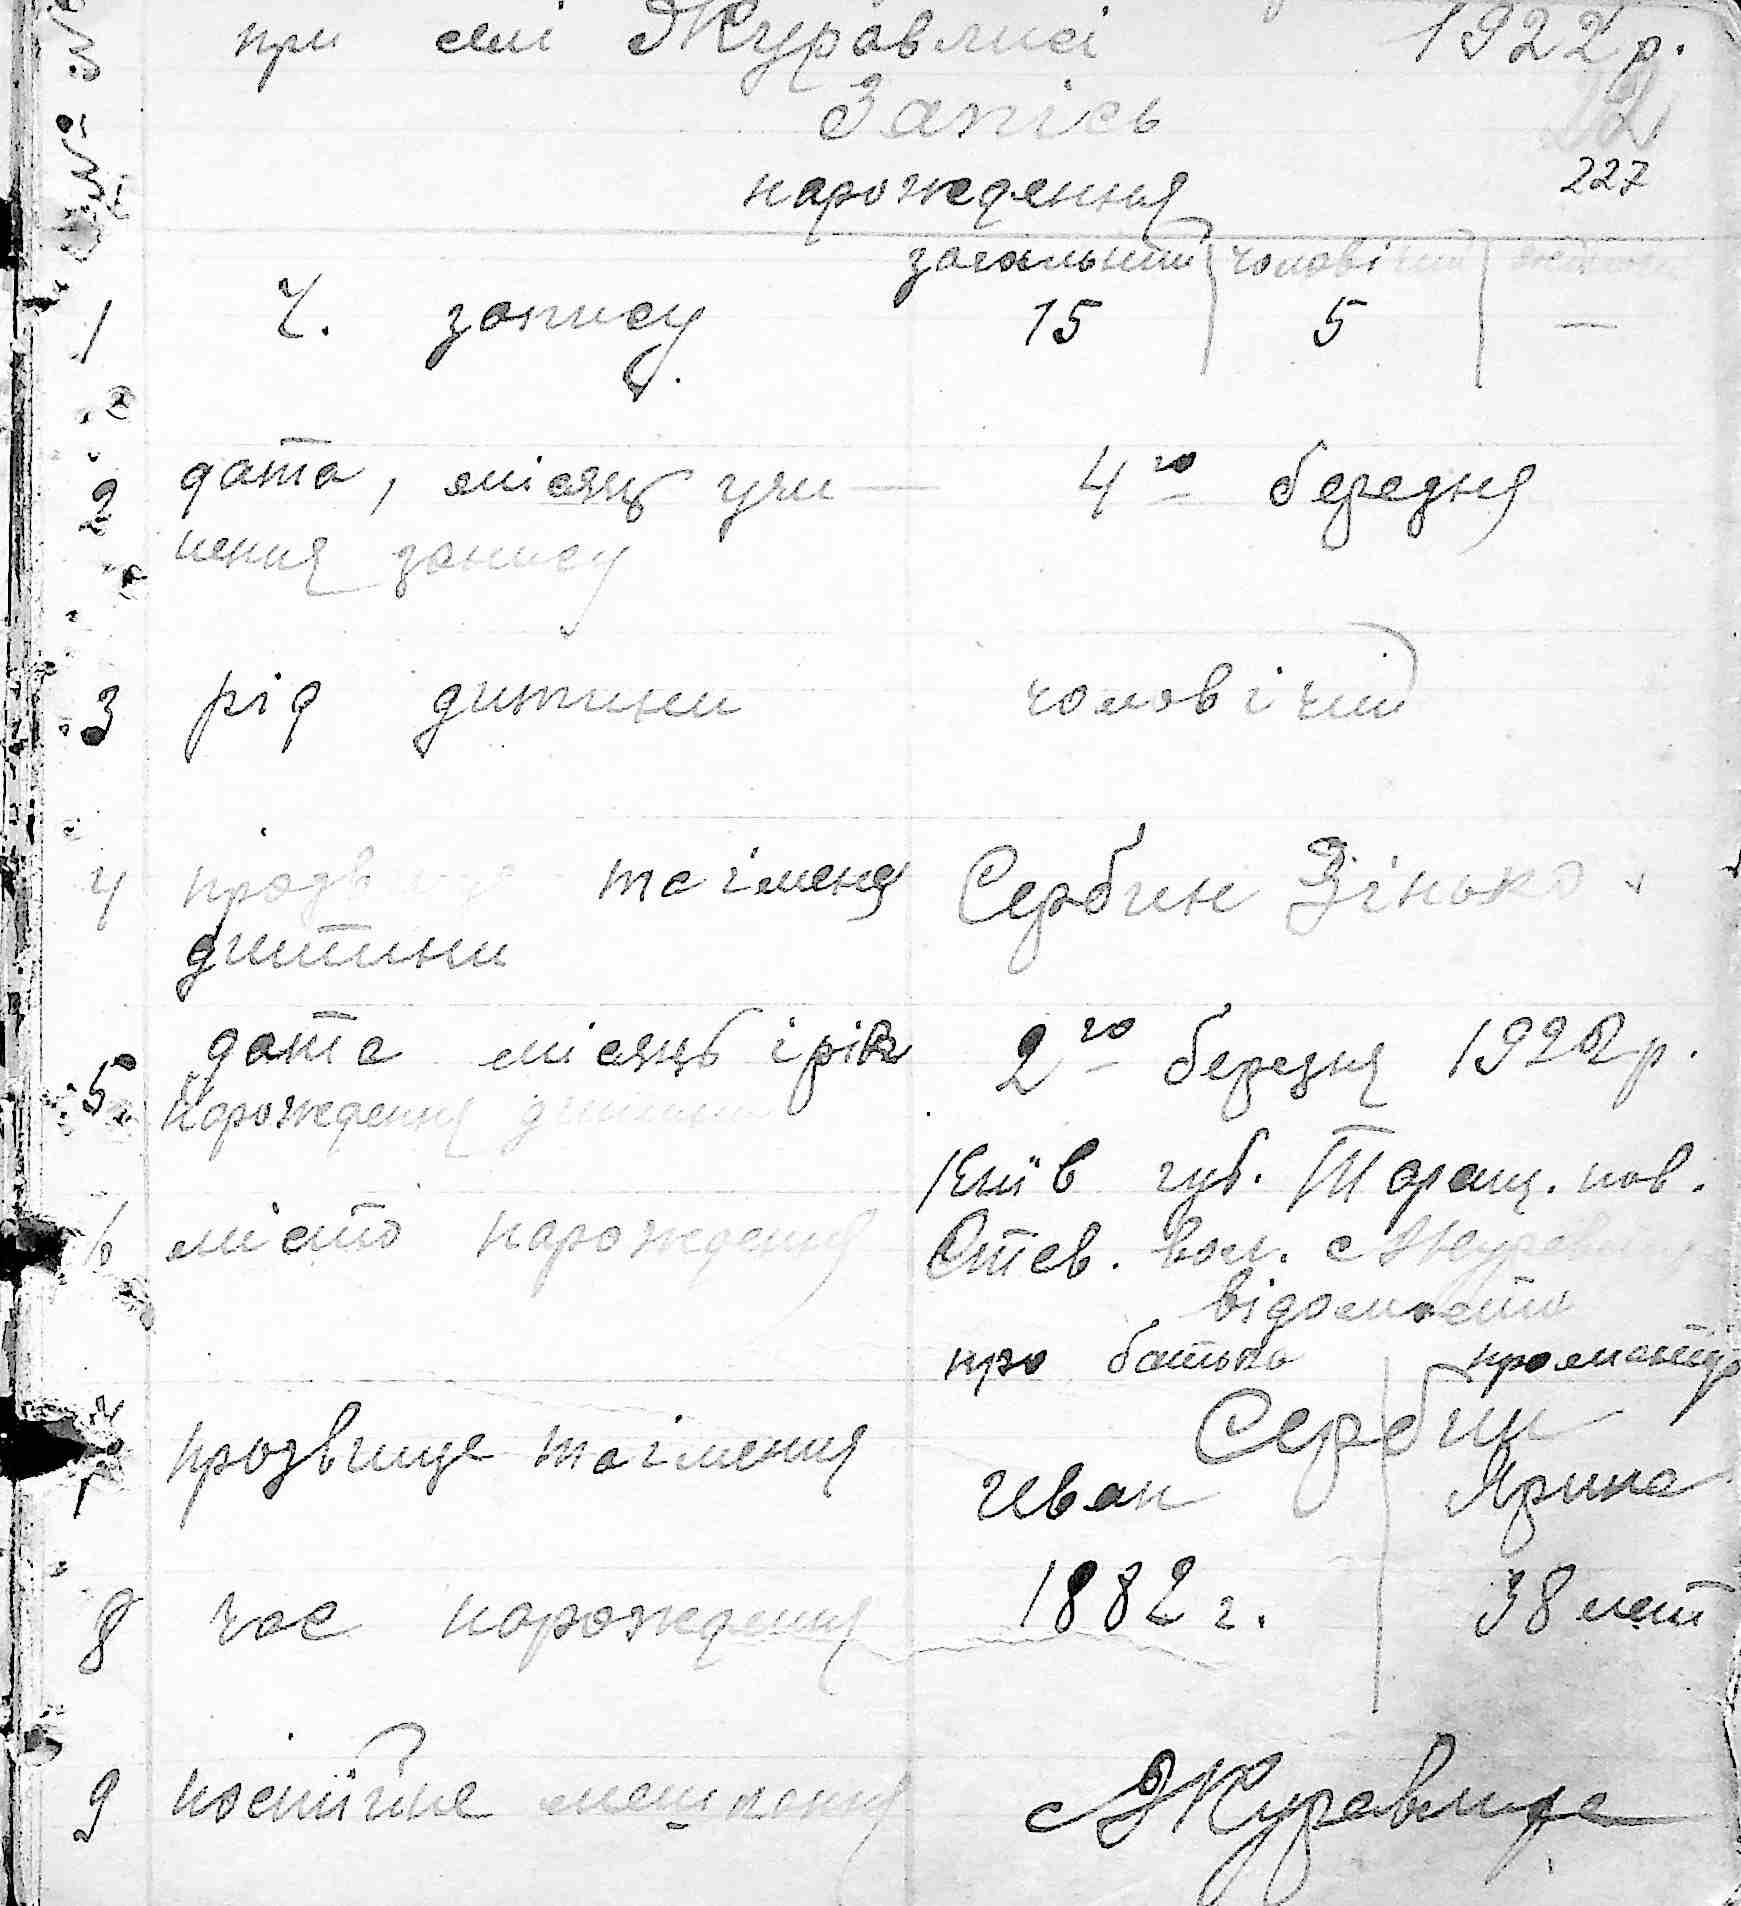 при селі Журавлисі 1922 р.
Запісь
народження
227
загальний чоловічий
1 Ч. запису 15 5 —
2 дата, місяць учи— 4го березня
нення запису
3 рід дитини чоловічий
4 прозвище та іменя Сербин Зінько
дитини
5 дата місяць і рік 2го березня 1922 р.
народження дитини
Київ губ. Таращ. пов.
6 місто народження Став. вол. с
відомости
про батька про матір
Сербин
7 прозвище та імення Иван Ярина
8 час народження 1882 г. 38 лет
9 постійне мешкання с Журавлиха